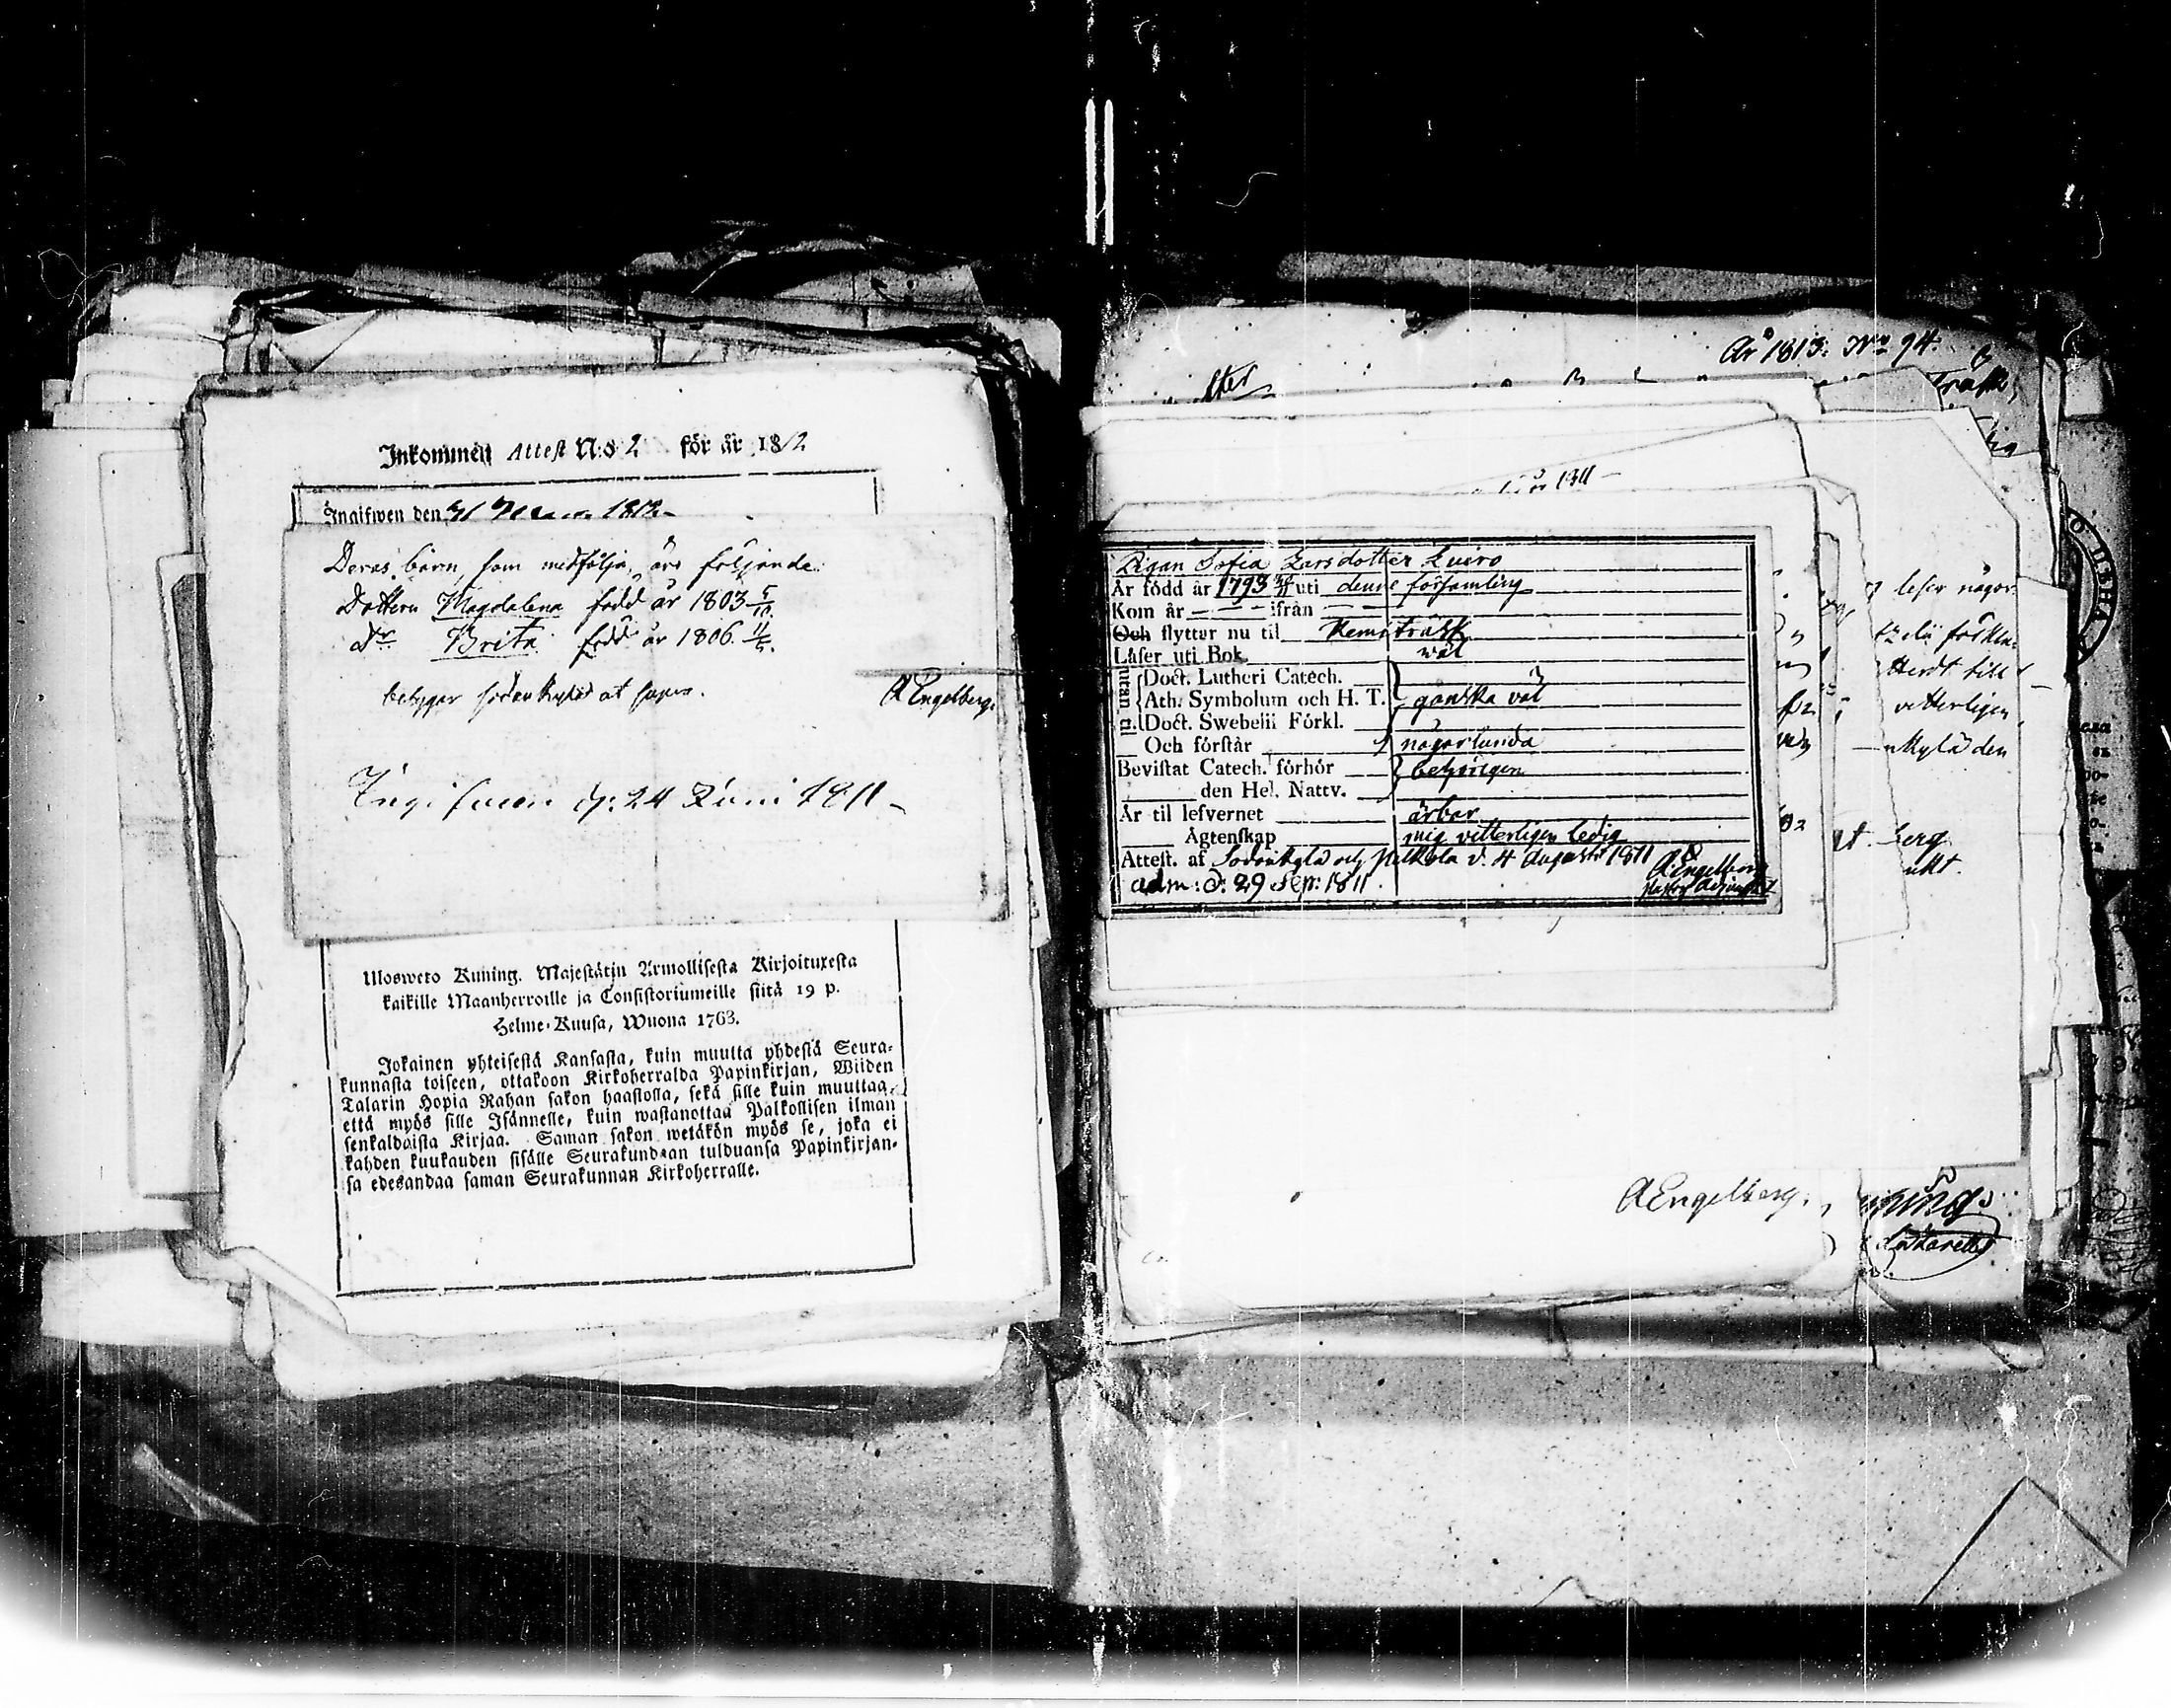 Inkommen Attest N:o 2 för år 1812
Ingifwen den 31 Mars 1812
Deras barn, som medfölja, äro följande:
Dottern Magdalena född år 1803 5/10
Dr Brita född år 1806.
betygar Sodankylä ut supra.
AEngelberg.
Ingifwen d: 24 Juni 1811
Ulosweto Kuning. Majestätin Armollisesta Kirjoituxesta
kaikille Maanherroille ja Consistoriumeille siitä 19 p.
Helme-Kuusa, Wuona 1763.
Jokainen yhteisestä Kansasta, kuin muutta yhdestä Seura-
kunnasta toiseen, ottakoon Kirkoherralda Papinkirjan, Wiiden
Talarin Hopia Rahan sakon haastolla, sekä sille kuin muuttaa,
että myös sille Isännelle, kuin wastanottaa Palkollisen ilman
senkaldaista Kirjaa. Saman sakon wetäkön myös se, joka ei
kahden kuukauden sisälle Seurakundaan tulduansa Papinkirjan-
sa edesandaa saman Seurakunnan Kirkoherralle.
År 1813: No 94.
Träsk,
år 1811
Pigan Sofia Larsdotter Kuiro
Är född år 1793 uti denne församling
Kom år — — ifrån — —
Och flyttar nu til Kemiträsk
Läser uti Bok wäl
utan til
Doct. Lutheri Catech.
Ath. Symbolum och H. T. ganska wäl
Doct. Swebelii Förkl.
Och förstår någorlunda
Bevistat Catech. förhör behörigen
den Hel. Nattv.
Är til lefvernet ärbar
Ägtenskap mig vitterligen ledig
Attest. af Sodankylä och Pelkola d. 4 Augusti 1811
AEngelberg
Pastors Adjunct
adm: d: 29 Sep: 1811.
läser någor
vitterligen
nkylä den
berg
AEngelberg.